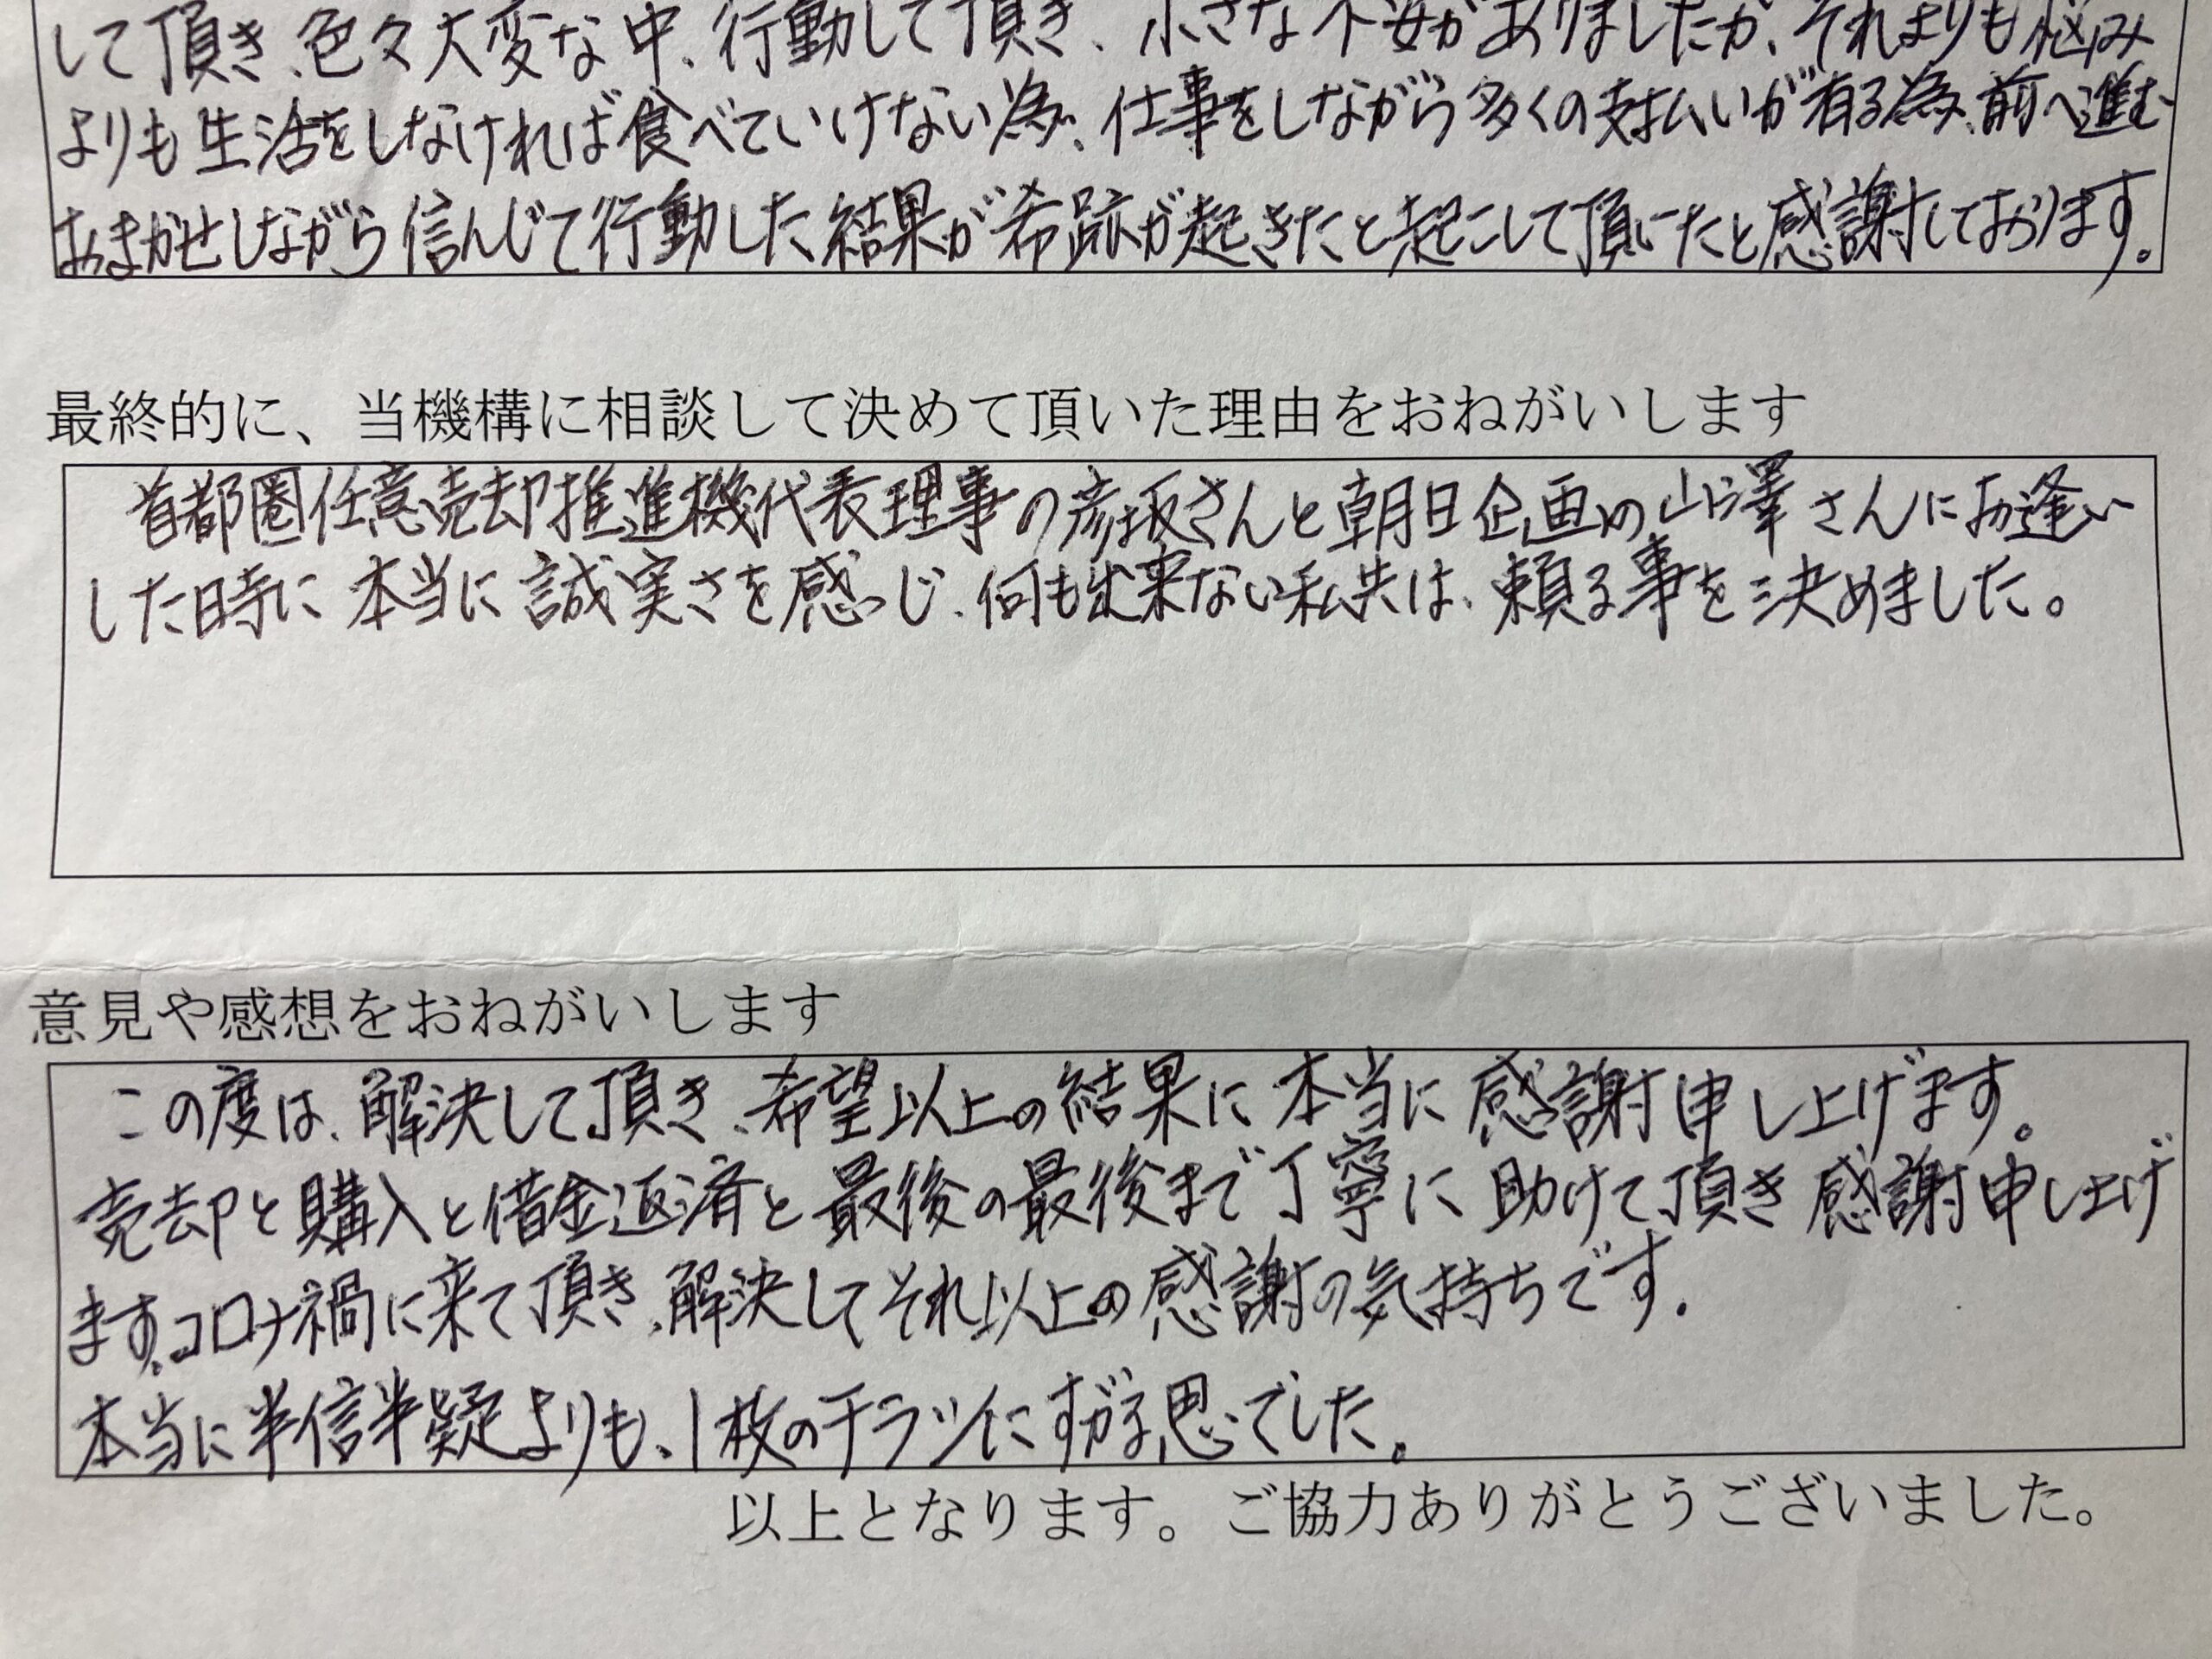 して頂き、色々大変な中、行動して頂き、小さな不安がありましたが、それよりも悩み
よりも生活をしなければ食べていけない為、仕事をしながら多くの支払いが有る為、前へ進む
おまかせしながら信んじて行動した結果が希跡が起きたと起こして頂いたと感謝しております。
最終的に、当機構に相談して決めて頂いた理由をおねがいします
首都圏任意売却推進機代表理事の彦坂さんと朝日企画の山澤さんにお逢い
した時に本当に誠実さを感じ、何も出来ない私共は、頼る事を決めました。
意見や感想をおねがいします
この度は、解決して頂き、希望以上の結果に本当に感謝申し上げます。
売却と購入と借金返済と最後の最後まで丁寧に助けて頂き感謝申し上げ
ます。コロナ禍に来て頂き、解決してそれ以上の感謝の気持ちです。
本当に半信半疑よりも、1枚のチラシにすがる思いでした。
以上となります。ご協力ありがとうございました。